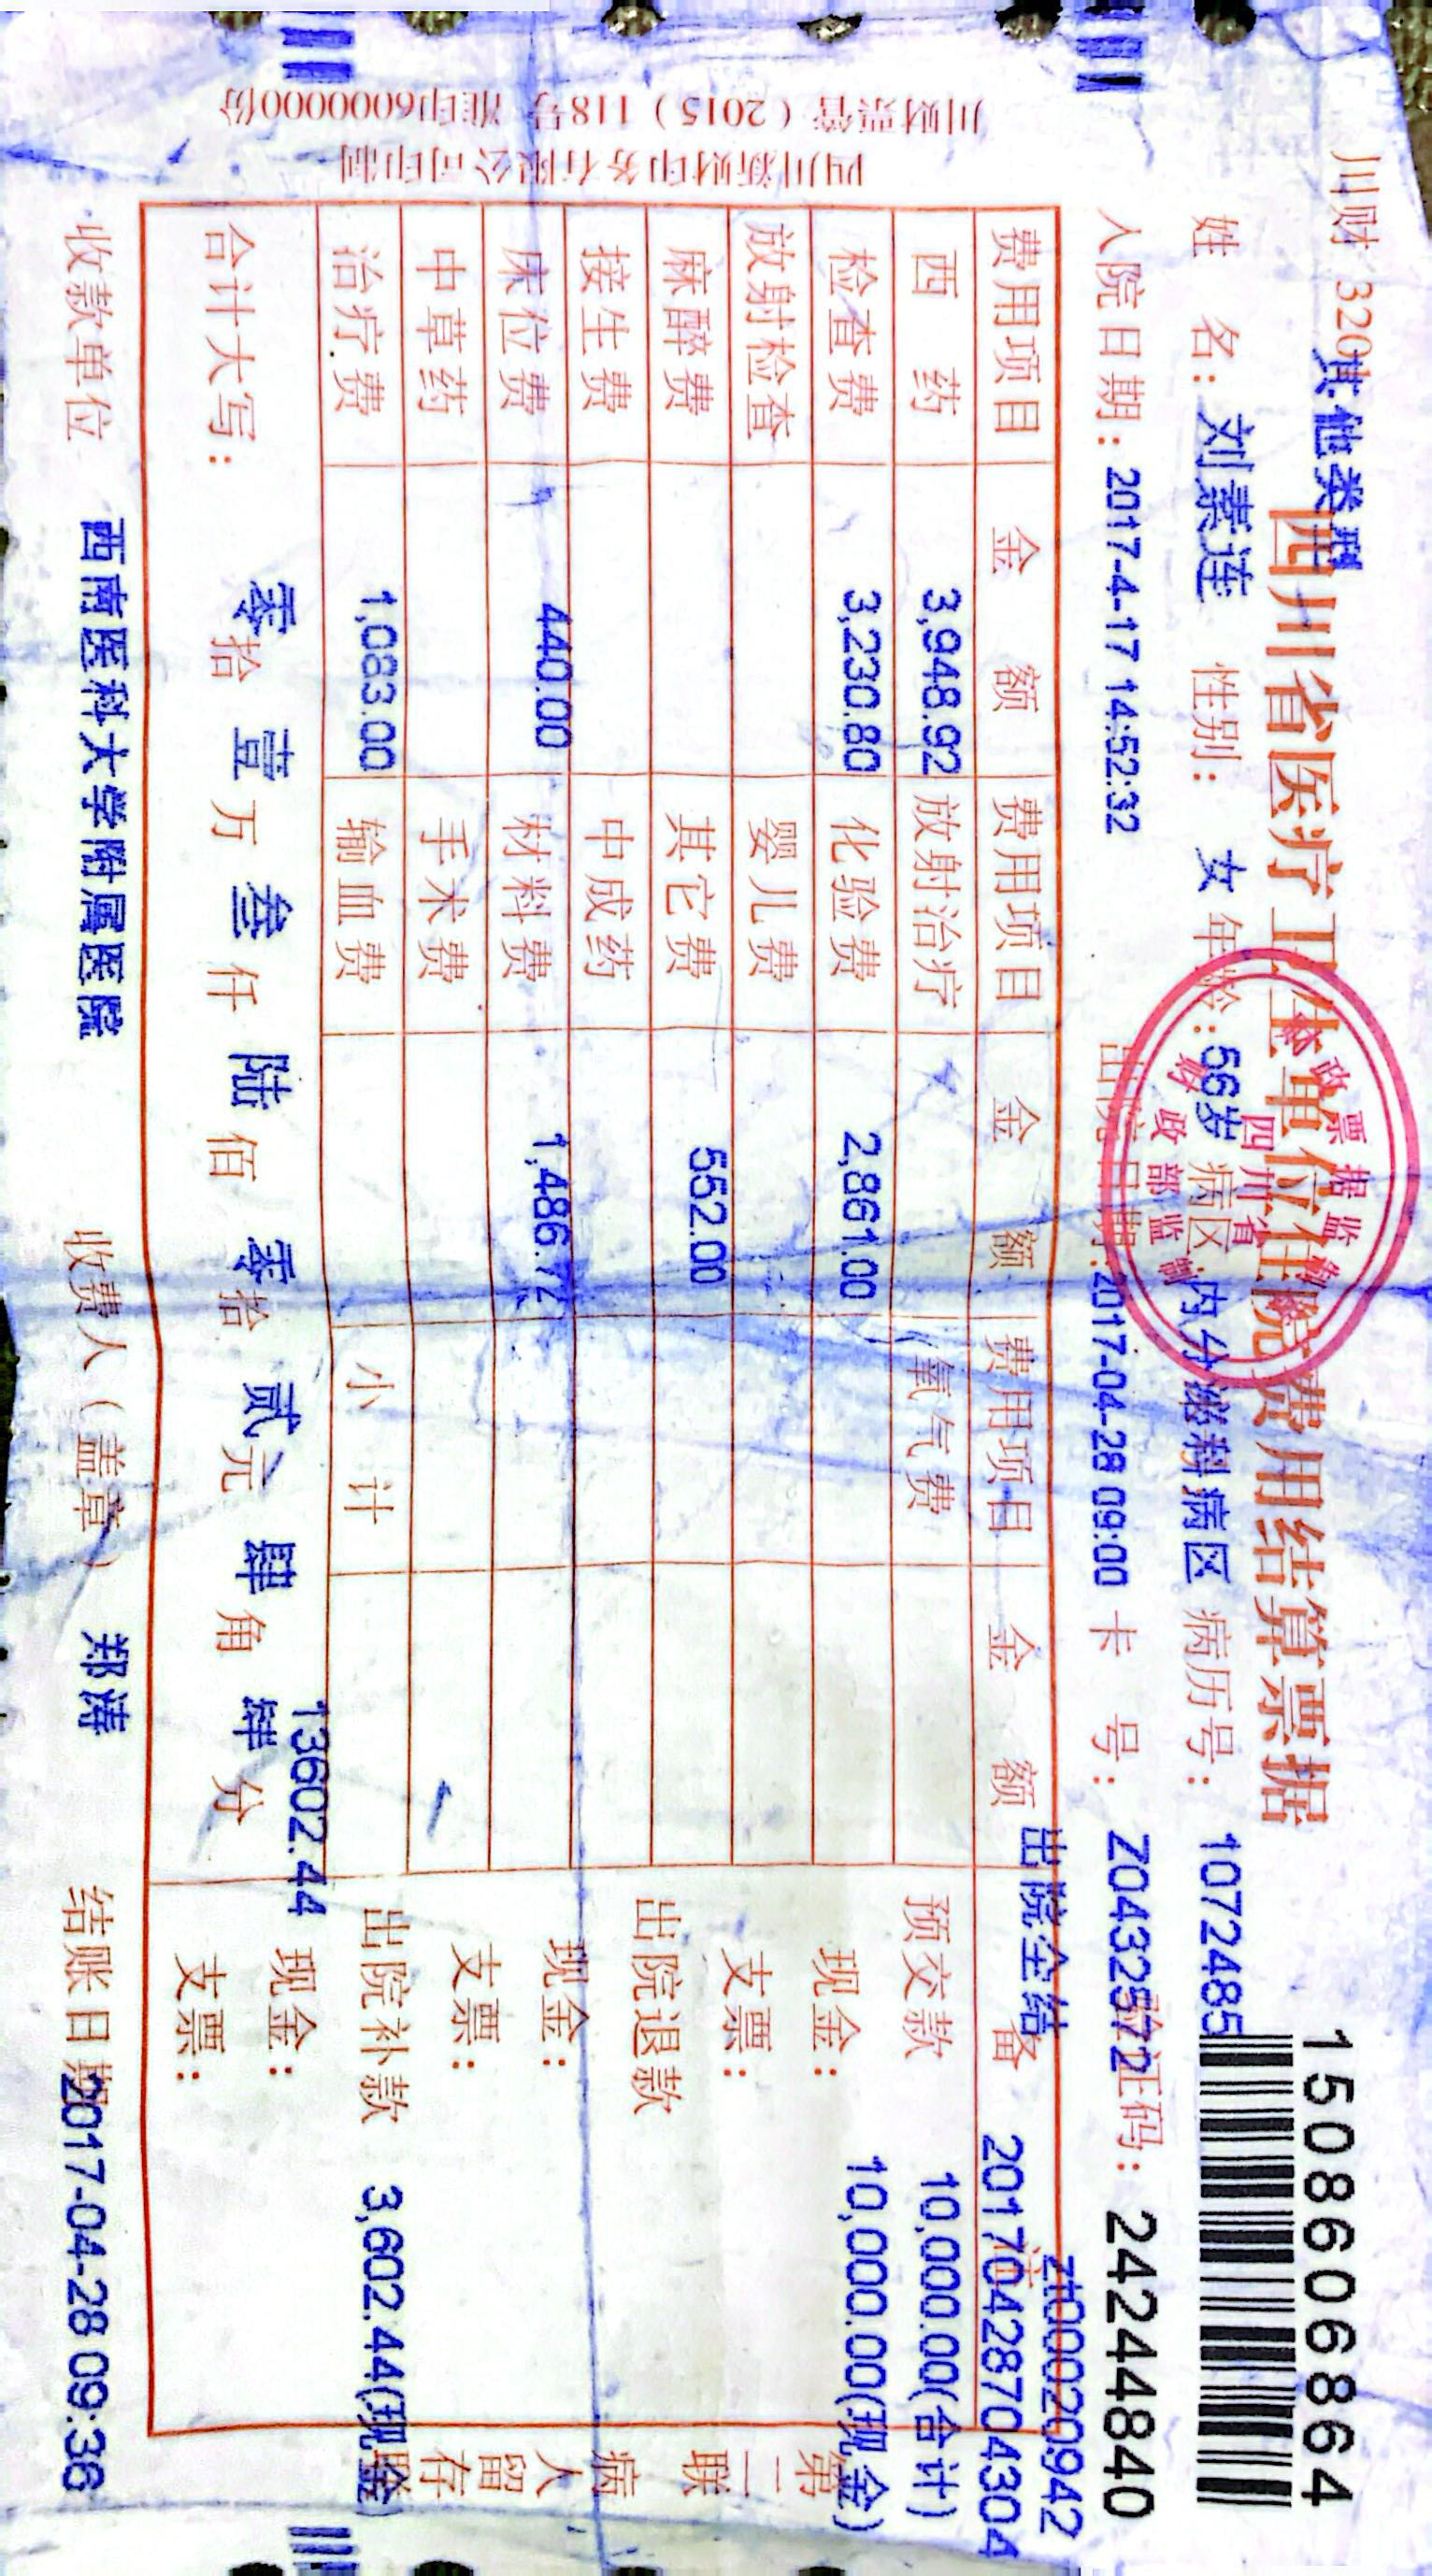 川财 3201
其他类型
四川省医疗卫生单位住院费用结算票据
1508606864
姓 名: 刘素连 性别: 女 年龄: 56岁 病区 内分泌科病区 病历号: 1072485
入院日期: 2017-4-17 14:52:32 出院日期: 2017-04-28 09:00 卡 号: Z0432572 验证码: 24244840
出院全结 zt00020942
费用项目 金 额 费用项目 金 额 费用项目 金 额 备 注 20170428704304
西 药 3,948.92 放射治疗 氧气费 预交款 10,000.00(合计)
检查费 3,230.80 化验费 2,861.00 现金: 10,000.00(现金)
放射检查 婴儿费 支票:
麻醉费 其它费 552.00 出院退款
接生费 中成药 现金:
床位费 440.00 材料费 1,486.72 支票:
中草药 手术费 出院补款 3,602.44(现金)
治疗费 1,083.00 输血费 小 计 现金:
13602.44
合计大写: 零拾 壹万 叁仟 陆佰 零拾 贰元 肆角 肆分 支票:
收款单位 西南医科大学附属医院 收费人(盖章) 郑涛 结账日期 2017-04-28 09:36
第二联 病人留存
四川新财印务有限公司印制
川财票管(2015)118号 准印6000000份
四川省
财政部监制